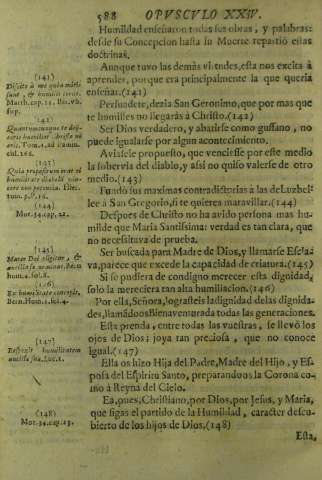 588 OPUSCULO XXIV.
Humildad enseñaron todas sus obras, y palabras:
desde su Concepcion hasta su Muerte repartió estas
doctrinas.
Aunque tuvo las demás virtudes, esta nos excita à
aprender, porque era principalmente la que queria
enseñar.(141)
Persuadete, dezia San Geronimo, que por mas que
te humilles no llegaràs à Christo.(142)
Ser Dios verdadero, y abatirse como gusano, no
puede igualarse por algun acontecimiento.
Aviasele propuesto, que venciesse por este medio
la sobervia del diablo, y assi no quiso valerse de otro
medio.(143)
Fundò sus maximas contradictorias à las de Luzbel-
lee à San Gregorio, si te quieres maravillar.(144)
Despues de Christo no ha avido persona mas hu-
milde que Maria Santissima: verdad es tan clara, que
no necessitava de prueba.
Ser buscada para Madre de Dios, y llamarse Escla-
va, parece que excede la capacidad de criatura.(145)
Si se pudiera de condigno merecer esta dignidad,
solo la mereciera tan alta humiliacion.(146)
Por ella, Señora, lograsteis la dignidad de las digni-
dades, llamãdoos Bienaventurada todas las generaciones.
Esta prenda, entre todas las vuestras, se llevó los
ojos de Dios: joya tan preciosa, que no conoce
igual.(147)
Ella os hizo Hija del Padre, Madre del Hijo, y Es-
posa del Espiritu Santo, preparandoos la Corona co-
mo à Reyna del Cielo.
Ea, pues, Christiano, por Dios, por Jesus, y Maria,
que sigas el partido de la Humildad, caracter descu-
bierto de los hijos de Dios.(148)
Esta,
(141)
Discite à me quia mitis
sum, & humilis corde.
Matth. cap. 11.
sup.
(142)
Quantumcumque te
humiliaveris, humilior Christo
Tom.
(143)
(144)
Mor. 34. cap. 22.
(145)
Mater Dei eligitur, &
ancillam se nominat. Bern.
hom. 4. fol. 8.
(146)
Ex humilitate concepit.
Bern. Hom. 1. fol. 4.
(147)
Respexit humilitatem
ancillæ suæ. Luc. 1.
(148)
Mor. 34. cap. 23.